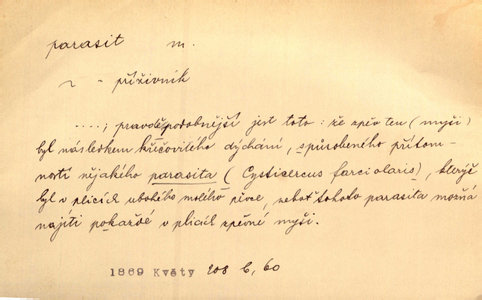 parasit m.
~ - příživník
....; pravděpodobnější jest toto: že zpěv ten (myší)
byl následkem křečovitého dýchání, spůsobeného přítom-
ností nějakého parasita (Cysticercus farciolaris), kterýž
byl v plicích ubohého malého pěvce, neboť tohoto parasita možná
najíti pokaždé v plicích zpěvné myši.
1869 Květy 208 b, 60